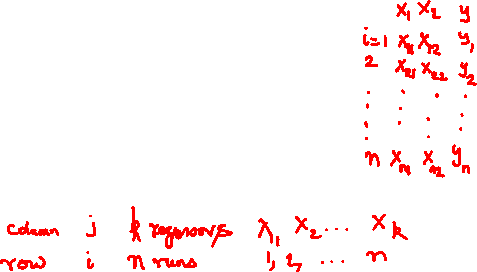 x₁ x₂ y
i=1 x₁₁ x₁₂ y₁
2 x₂₁ x₂₂ y₂
: . . .
: : : :
n xₙ₁ xₙ₂ yₙ
column j k regressors x₁ x₂ ... xₖ
row i n runs 1, 2, ... n